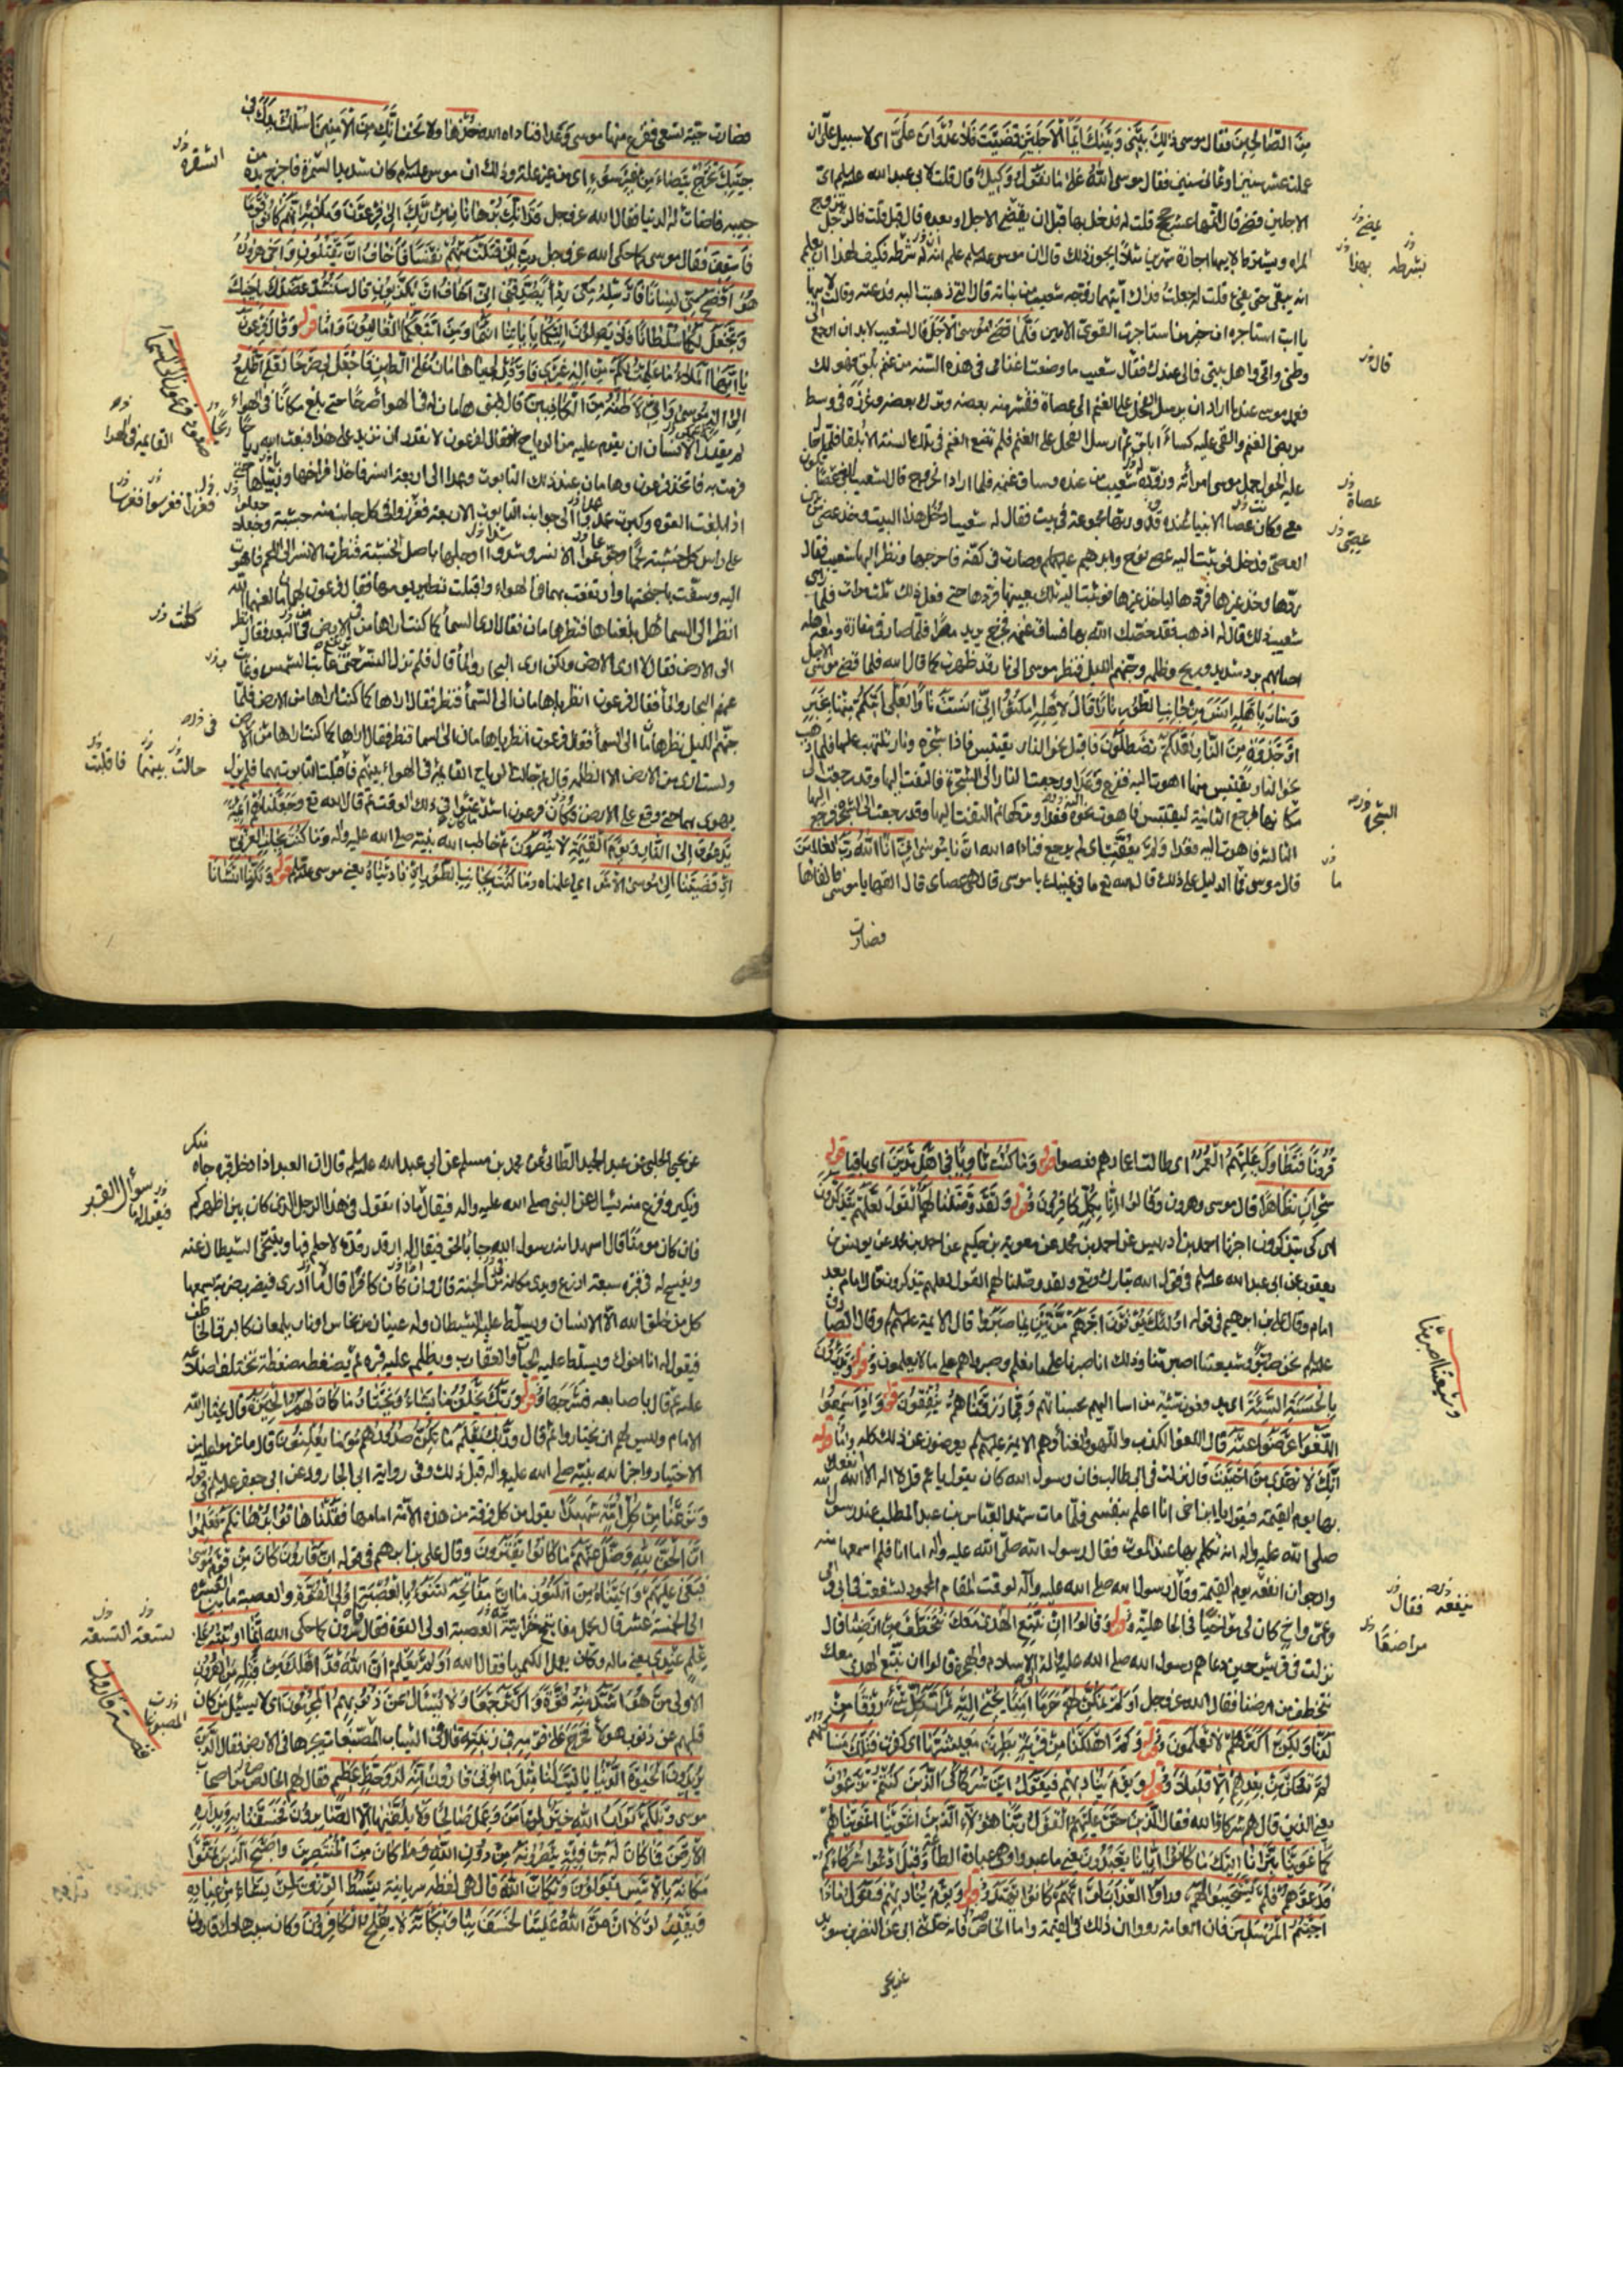 مِنَ الصَّالِحِينَ فقال موسى ذٰلِكَ بَيْنِي وَبَيْنَكَ أَيَّمَا الْأَجَلَيْنِ قَضَيْتُ فَلَا عُدْوَانَ عَلَيَّ اى لا سبيل علىّ ان
عملت عشر سنين او ثمان سنين فقال موسى اللهُ عَلىٰ مَا نَقُولُ وَكِيلٌ قال قلت لابى عبد الله عليه السلم اىّ
الاجلين قضى قال اتمها عشر حجج قلت له فدخل بها قبل ان يقضى الاجل او بعده قال قبل قلت فالرجل يتزوج
المراة ويشترط لابيها اجارة شهرين مثلا ايجوز ذلك قال ان موسى عليه السلم علم انه يتم شرطه فكيف لهذا ان يعلم
انه يبقى حتى يفى قلت له جعلت فداك ايتهما زوجه شعيب من بناته قال التى ذهبت اليه فدعته وقالت لابيها
يا ابت استاجره ان خير من استاجرت القوى الامين فَلَمَّا قَضىٰ مُوسَى الْأَجَلَ قال لشعيب لابد ان ارجع الى
وطنى وامى واهل بيتى فما لى عندك فقال شعيب ما وضعت اغنامى فى هذه السنة من غنم بلق فهو لك
فعمد موسى عندما اراد ان يرسل الفحل على الغنم الى عصاة فقشر منه بعضه وترك بعضه وغرزه فى وسط
مربض الغنم والقى عليه كساءً ابلق ثم ارسل الفحل على الغنم فلم تضع الغنم فى تلك السنة الا بلقا فلما حال
عليه الحول حمل موسى امراته وزوده شعيب من عنده وساق غنمه فلما اراد الخروج قال لشعيب ابغى عصا تكون
معى وكان عصا الانبياء عنده قد ورثها مجموعة فى بيت فقال له شعيب ادخل هذا البيت وخذ عصى من بين
العصى فدخل فوثبت اليه عصى نوح وابراهيم عليهما السلم وصارت فى كفه فاخرجها ونظر اليها شعيب فقال
ردها وخذ غيرها فردها لياخذ غيرها فوثبت اليه تلك بعينها فردها حتى فعل ذلك ثلث مرات فلما راى
شعيب ذلك قال له اذهب فقد خصك الله بها فساق غنمه فخرج يريد مصر فلما صار فى مفازة ومعه اهله
اصابهم برد شديد وريح وظلمة وجنهم الليل فنظر موسى الى نار قد ظهرت كما قال الله فلما قضى موسى الاجل
وَسَارَ بِأَهْلِهِ اٰنَسَ مِنْ جَانِبِ الطُّورِ نَارًا قَالَ لِأَهْلِهِ امْكُثُوا إِنِّي اٰنَسْتُ نَارًا لَعَلِّي اٰتِيكُمْ مِنْهَا بِخَبَرٍ
أَوْ جَذْوَةٍ مِنَ النَّارِ لَعَلَّكُمْ تَصْطَلُونَ فاقبل نحو النار يقتبس فاذا شجرة ونار تلتهب عليها فلما ذهب
نحو النار يقتبس منها اهوت اليه ففزع وَعَدَا ورجعت النار الى الشجرة فالتفت اليها وقد رجعت الى
مكانها فرجع الثانية ليقتبس فاهوت نحوه فعدا وتركها ثم التفت اليها وقد رجعت الى الشجرة فرجع اليها
الثالثة فاهوت اليه فعدا وَلَمْ يُعَقِّبْ اى لم يرجع فناداه الله اَنْ يَا مُوسىٰ إِنِّي أَنَا اللهُ رَبُّ الْعَالَمِينَ
قال موسى فما الدليل على ذلك قال الله تع ما فى يمينك يا موسى قال هى عصاى قال القها يا موسى فالقاها
فصارت
عصى خ ل
بشرطه
بهذا
قال
عصاة
عصى
الشجرة
ما
فصارت حيّة تسعى ففزع منها موسى وعدا فناداه الله خُذْهَا وَلَا تَخَفْ إِنَّكَ مِنَ الْاٰمِنِينَ اُسْلُكْ يَدَكَ فِي
جَيْبِكَ تَخْرُجْ بَيْضَاءَ مِنْ غَيْرِ سُوءٍ اى من غير علة وذلك ان موسى عليه السلم كان شديد السمرة فاخرج يده من
جيبه فاضاءت له الدنيا فقال الله عز وجل فَذَانِكَ بُرْهَانَانِ مِنْ رَبِّكَ إِلىٰ فِرْعَوْنَ وَمَلَائِهِ إِنَّهُمْ كَانُوا قَوْمًا
فَاسِقِينَ فقال موسى كما حكى الله عز وجل رَبِّ إِنِّي قَتَلْتُ مِنْهُمْ نَفْسًا فَأَخَافُ أَنْ يَقْتُلُونِ وَأَخِي هٰرُونُ
هُوَ أَفْصَحُ مِنِّي لِسَانًا فَأَرْسِلْهُ مَعِيَ رِدْءًا يُصَدِّقُنِي إِنِّي أَخَافُ أَنْ يُكَذِّبُونِ قَالَ سَنَشُدُّ عَضُدَكَ بِأَخِيكَ
وَنَجْعَلُ لَكُمَا سُلْطَانًا فَلَا يَصِلُونَ إِلَيْكُمَا بِاٰيَاتِنَا أَنْتُمَا وَمَنِ اتَّبَعَكُمَا الْغَالِبُونَ واما قوله وَقَالَ فِرْعَوْنُ
يَا أَيُّهَا الْمَلَأُ مَا عَلِمْتُ لَكُمْ مِنْ إِلٰهٍ غَيْرِي فَأَوْقِدْ لِي يَا هَامَانُ عَلَى الطِّينِ فَاجْعَلْ لِي صَرْحًا لَعَلِّي أَطَّلِعُ
إِلىٰ إِلٰهِ مُوسىٰ وَإِنِّي لَأَظُنُّهُ مِنَ الْكَاذِبِينَ قال فبنى هامان له فى الهواء صرحًا حتى بلغ مكانًا فى الهواء
لم يقدر الانسان ان يقوم عليه من الرياح فقال لفرعون لا نقدر ان نزيد على هذا فبعث الله رياحًا
فرمت به فاتخذ فرعون وهامان عند ذلك التابوت وعمدا الى اربعة انسر فاخذا فراخها وربياها حتى
اذا بلغت القوة وكبرت عمدوا الى جوانب التابوت الاربعة فغرزوا فى كل جانب منه خشبة وجعلوا
على راس كل خشبة لحمًا وجوعوا الانسر وشدوا ارجلها باصل الخشبة فنظرت الانسر الى اللحم فاهوت
اليه وسفت باجنحتها وارتفعت بهما فى الهواء واقبلت تطير يومها فقال فرعون لهامان
انظر الى السماء هل بلغناها فنظر هامان فقال ارى السماء كما كنت اراها من الارض فى البعد فقال انظر
الى الارض فقال لا ارى الارض ولكن ارى البحار والماء قال فلم تزل النسر حتى غابت الشمس وغابت
عنهم البحار والماء فقال فرعون انظر يا هامان الى السماء فنظر فقال اراها كما كنت اراها من الارض فلما
جنهم الليل نظر هامان الى السماء فقال فرعون انظر يا هامان الى السماء فنظر فقال اراها كما كنت اراها من الارض
ولست ارى من الارض الا الظلمة قال ثم حالت الرياح القائمة فى الهواء بينهم فاقبلت التابوت بهما فلم يزل
يهوى بهما حتى وقع على الارض وكان فرعون اشد عتوا فى ذلك الوقت ثم قال الله تع وَجَعَلْنَاهُمْ أَئِمَّةً
يَدْعُونَ إِلَى النَّارِ وَيَوْمَ الْقِيٰمَةِ لَا يُنْصَرُونَ ثم خاطب الله نبيه صلى الله عليه واله وَمَا كُنْتَ بِجَانِبِ الْغَرْبِيِّ
إِذْ قَضَيْنَا إِلىٰ مُوسَى الْأَمْرَ اى اعلمناه وَمَا كُنْتَ بِجَانِبِ الطُّورِ إِذْ نَادَيْنَا يعنى موسى عليه السلم قوله وَلٰكِنَّا أَنْشَأْنَا
الشقرة
القائمة فى الهوا
فغرزا فغرسوا فغرسا
حالت بينهما فاقلبت
قُرُونًا فَتَطَاوَلَ عَلَيْهِمُ الْعُمُرُ اى طالت اعمارهم فعصوا قوله وَمَا كُنْتَ ثَاوِيًا فِي أَهْلِ مَدْيَنَ اى باقيا قوله
سِحْرَانِ تَظَاهَرَا قال موسى وهرون وَقَالُوا إِنَّا بِكُلٍّ كَافِرُونَ قوله وَلَقَدْ وَصَّلْنَا لَهُمُ الْقَوْلَ لَعَلَّهُمْ يَتَذَكَّرُونَ
اى كى يتذكرون اخبرنا احمد بن ادريس عن احمد بن محمد عن معوية بن حكيم عن احمد بن محمد عن يونس بن
يعقوب عن ابى عبد الله عليه السلم فى قول الله تبارك وتع ولقد وصلنا لهم القول لعلهم يتذكرون قال امام بعد
امام وقال على بن ابراهيم فى قوله أُولٰئِكَ يُؤْتَوْنَ أَجْرَهُمْ مَرَّتَيْنِ بِمَا صَبَرُوا قال الائمة عليهم السلم وقال الصادق
عليه السلم نحن صبر وشيعتنا اصبر منا وذلك انا صبرنا على ما نعلم وصبروا هم على ما لا يعلمون قوله وَيَدْرَءُونَ
بِالْحَسَنَةِ السَّيِّئَةَ اى يدفعون سيئة من اساء اليهم بحسناتهم وَمِمَّا رَزَقْنَاهُمْ يُنْفِقُونَ قوله وَإِذَا سَمِعُوا
اللَّغْوَ أَعْرَضُوا عَنْهُ قال اللغو الكذب واللهو والغناء وهم الائمة عليهم السلم يعرضون عن ذلك كله واما قوله
إِنَّكَ لَا تَهْدِي مَنْ أَحْبَبْتَ قال نزلت فى ابى طالب فان رسول الله كان يقول يا عم قل لا اله الا الله انفعك
بها يوم القيمة فيقول يا ابن اخى انا اعلم بنفسى فلما مات شهد العباس بن عبد المطلب عند رسول الله
صلى الله عليه واله انه تكلم بها عند الموت فقال رسول الله صلى الله عليه واله اما انا فلم اسمعها منه
وارجو ان انفعه يوم القيمة وقال رسول الله صلى الله عليه واله لو قمت المقام المحمود لشفعت فى ابى وامى
وعمى واخ كان لى مواخيًا فى الجاهلية قوله وَقَالُوا إِنْ نَتَّبِعِ الْهُدىٰ مَعَكَ نُتَخَطَّفْ مِنْ أَرْضِنَا قال
نزلت فى قريش حين دعاهم رسول الله صلى الله عليه واله الى الاسلام والهجرة قالوا ان نتبع الهدى معك
نتخطف من ارضنا فقال الله عز وجل أَوَلَمْ نُمَكِّنْ لَهُمْ حَرَمًا اٰمِنًا يُجْبىٰ إِلَيْهِ ثَمَرَاتُ كُلِّ شَيْءٍ رِزْقًا مِنْ
لَدُنَّا وَلٰكِنَّ أَكْثَرَهُمْ لَا يَعْلَمُونَ قوله وَكَمْ أَهْلَكْنَا مِنْ قَرْيَةٍ بَطِرَتْ مَعِيشَتَهَا اى كفرت فَتِلْكَ مَسَاكِنُهُمْ
لَمْ تُسْكَنْ مِنْ بَعْدِهِمْ إِلَّا قَلِيلًا قوله وَيَوْمَ يُنَادِيهِمْ فَيَقُولُ أَيْنَ شُرَكَائِيَ الَّذِينَ كُنْتُمْ تَزْعُمُونَ
يعنى الذين قال هم شركاء الله فقال الَّذِينَ حَقَّ عَلَيْهِمُ الْقَوْلُ رَبَّنَا هٰؤُلَاءِ الَّذِينَ أَغْوَيْنَا أَغْوَيْنَاهُمْ
كَمَا غَوَيْنَا تَبَرَّأْنَا إِلَيْكَ مَا كَانُوا إِيَّانَا يَعْبُدُونَ يعنى ما عبدوا وهى عبادة الطاعة وَقِيلَ ادْعُوا شُرَكَاءَكُمْ
فَدَعَوْهُمْ فَلَمْ يَسْتَجِيبُوا لَهُمْ وَرَأَوُا الْعَذَابَ لَوْ أَنَّهُمْ كَانُوا يَهْتَدُونَ قوله وَيَوْمَ يُنَادِيهِمْ فَيَقُولُ مَاذَا
أَجَبْتُمُ الْمُرْسَلِينَ فان العامة رووا ان ذلك فى القيمة واما الخاصة فانه حدثنى ابى عن النضر بن سويد
عن يحيى
وشيعتنا اصبر منا
ينفعه فقال
عن يحيى الحلبى عن عبد الحميد الطائى عن محمد بن مسلم عن ابى عبد الله عليه السلم قال ان العبد اذا دخل قبره جاءه منكر
ونكير وفزع منه يسال عن النبى صلى الله عليه واله فيقال له ماذا تقول فى هذا الرجل الذى كان بين اظهركم
فان كان مومنًا قال اشهد انه رسول الله جاء بالحق فيقال له ارقد رقدة لا حلم فيها ويتنحى الشيطان عنه
ويفسح له فى قبره سبعة اذرع ويرى مكانه من الجنة قال وان كان كافرًا قال ما ادرى فيضرب ضربة يسمعها
كل من خلق الله الا الانسان ويسلط عليه الشيطان وله عينان من نحاس او نار يلمعان كالبرق الخاطف
فيقول له انا اخوك ويسلط عليه الحيات والعقارب ويظلم عليه قبره ثم يضغطه ضغطة تختلف اضلاعه
عليه ثم قال باصابعه فشرجها قوله وَرَبُّكَ يَخْلُقُ مَا يَشَاءُ وَيَخْتَارُ مَا كَانَ لَهُمُ الْخِيَرَةُ قال يختار الله
الامام وليس لهم ان يختاروا ثم قال وَرَبُّكَ يَعْلَمُ مَا تُكِنُّ صُدُورُهُمْ وَمَا يُعْلِنُونَ قال ما عزموا عليه من
الاختيار واخبر الله نبيه صلى الله عليه واله قبل ذلك وفى رواية ابى الجارود عن ابى جعفر عليه السلم فى قوله
وَنَزَعْنَا مِنْ كُلِّ أُمَّةٍ شَهِيدًا يقول من كل فرقة من هذه الامة امامها فَقُلْنَا هَاتُوا بُرْهَانَكُمْ فَعَلِمُوا
أَنَّ الْحَقَّ لِلّٰهِ وَضَلَّ عَنْهُمْ مَا كَانُوا يَفْتَرُونَ وقال على بن ابراهيم فى قوله إِنَّ قَارُونَ كَانَ مِنْ قَوْمِ مُوسىٰ
فَبَغىٰ عَلَيْهِمْ وَاٰتَيْنَاهُ مِنَ الْكُنُوزِ مَا إِنَّ مَفَاتِحَهُ لَتَنُوءُ بِالْعُصْبَةِ أُولِي الْقُوَّةِ والعصبة ما بين العشرة
الى الخمسة عشر قال كان يحمل مفاتيح خزائنه العصبة اولى القوة فقال قارون كما حكى الله إِنَّمَا أُوتِيتُهُ عَلىٰ
عِلْمٍ عِنْدِي يعنى ماله وكان يعمل الكيميا فقال الله أَوَلَمْ يَعْلَمْ أَنَّ اللهَ قَدْ أَهْلَكَ مِنْ قَبْلِهِ مِنَ الْقُرُونِ
الاولى مَنْ هُوَ أَشَدُّ مِنْهُ قُوَّةً وَأَكْثَرُ جَمْعًا وَلَا يُسْأَلُ عَنْ ذُنُوبِهِمُ الْمُجْرِمُونَ اى لا يسئل من كان
قبلهم عن ذنوب هولاء فَخَرَجَ عَلىٰ قَوْمِهِ فِي زِينَتِهِ قال فى الثياب المصبغات يجرها فى الارض فقال الَّذِينَ
يُرِيدُونَ الْحَيٰوةَ الدُّنْيَا يَا لَيْتَ لَنَا مِثْلَ مَا أُوتِيَ قَارُونُ إِنَّهُ لَذُو حَظٍّ عَظِيمٍ فقال لهم الخالص من اصحاب
موسى وَيْلَكُمْ ثَوَابُ اللهِ خَيْرٌ لِمَنْ اٰمَنَ وَعَمِلَ صَالِحًا وَلَا يُلَقَّاهَا إِلَّا الصَّابِرُونَ فَخَسَفْنَا بِهِ وَبِدَارِهِ
الْأَرْضَ فَمَا كَانَ لَهُ مِنْ فِئَةٍ يَنْصُرُونَهُ مِنْ دُونِ اللهِ وَمَا كَانَ مِنَ الْمُنْتَصِرِينَ وَأَصْبَحَ الَّذِينَ تَمَنَّوْا
مَكَانَهُ بِالْأَمْسِ يَقُولُونَ وَيْكَأَنَّ اللهَ قال هى لفظة سريانية يَبْسُطُ الرِّزْقَ لِمَنْ يَشَاءُ مِنْ عِبَادِهِ
وَيَقْدِرُ لَوْلَا أَنْ مَنَّ اللهُ عَلَيْنَا لَخَسَفَ بِنَا وَيْكَأَنَّهُ لَا يُفْلِحُ الْكَافِرُونَ وكان سبب هلاك قارون
سوال القبر
فيقول له ما
قصة قارون